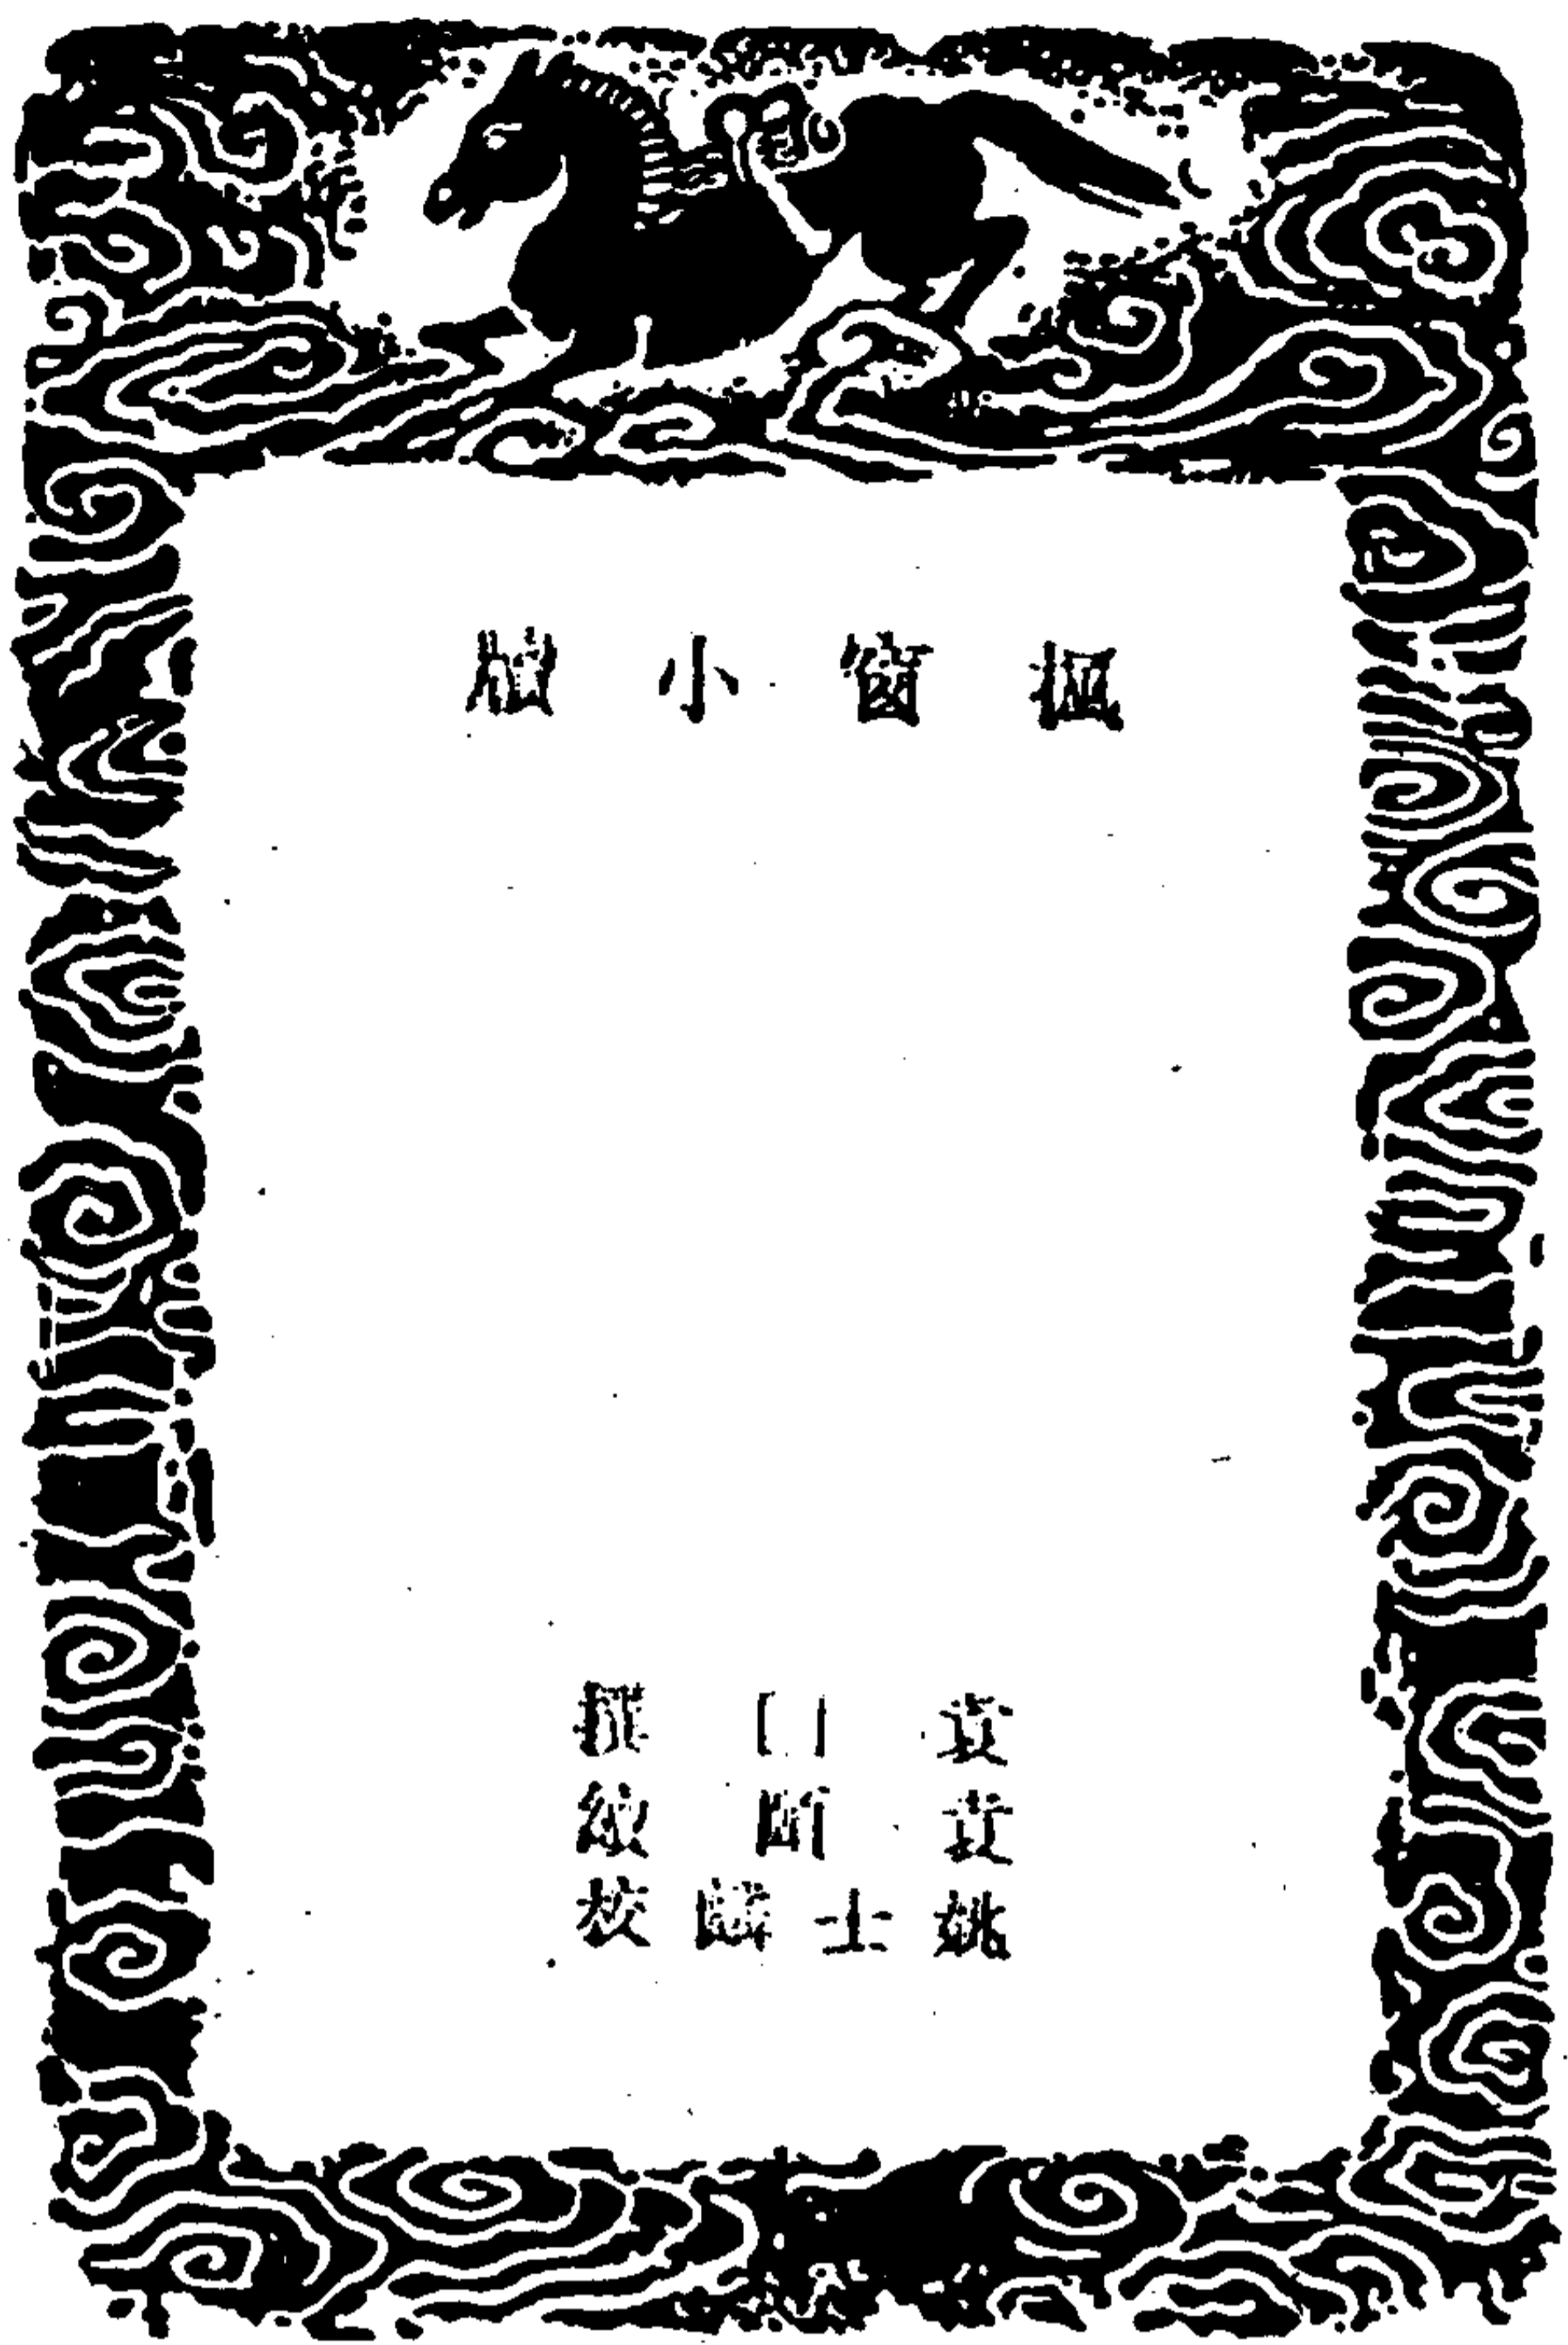 楓窗小牘
袁□撰
袁頤續
姚士麟校